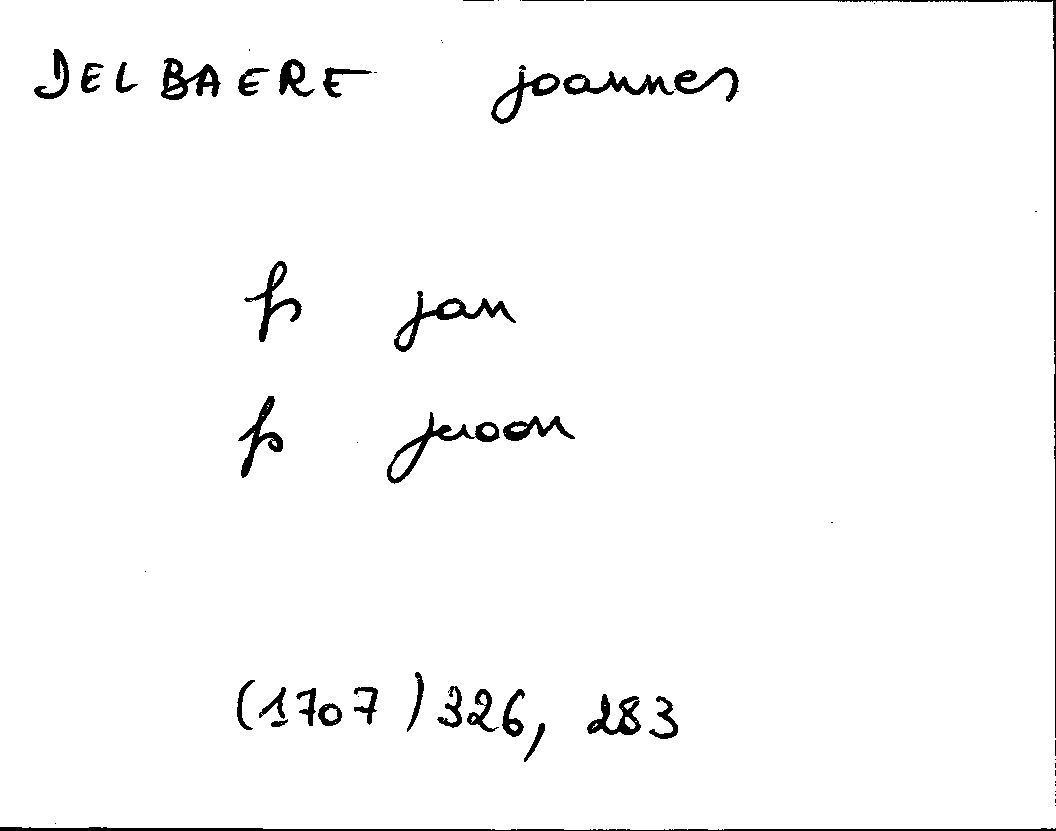 DELBAERE joannes
fs jan
fs juoon
(1707) 326, 283